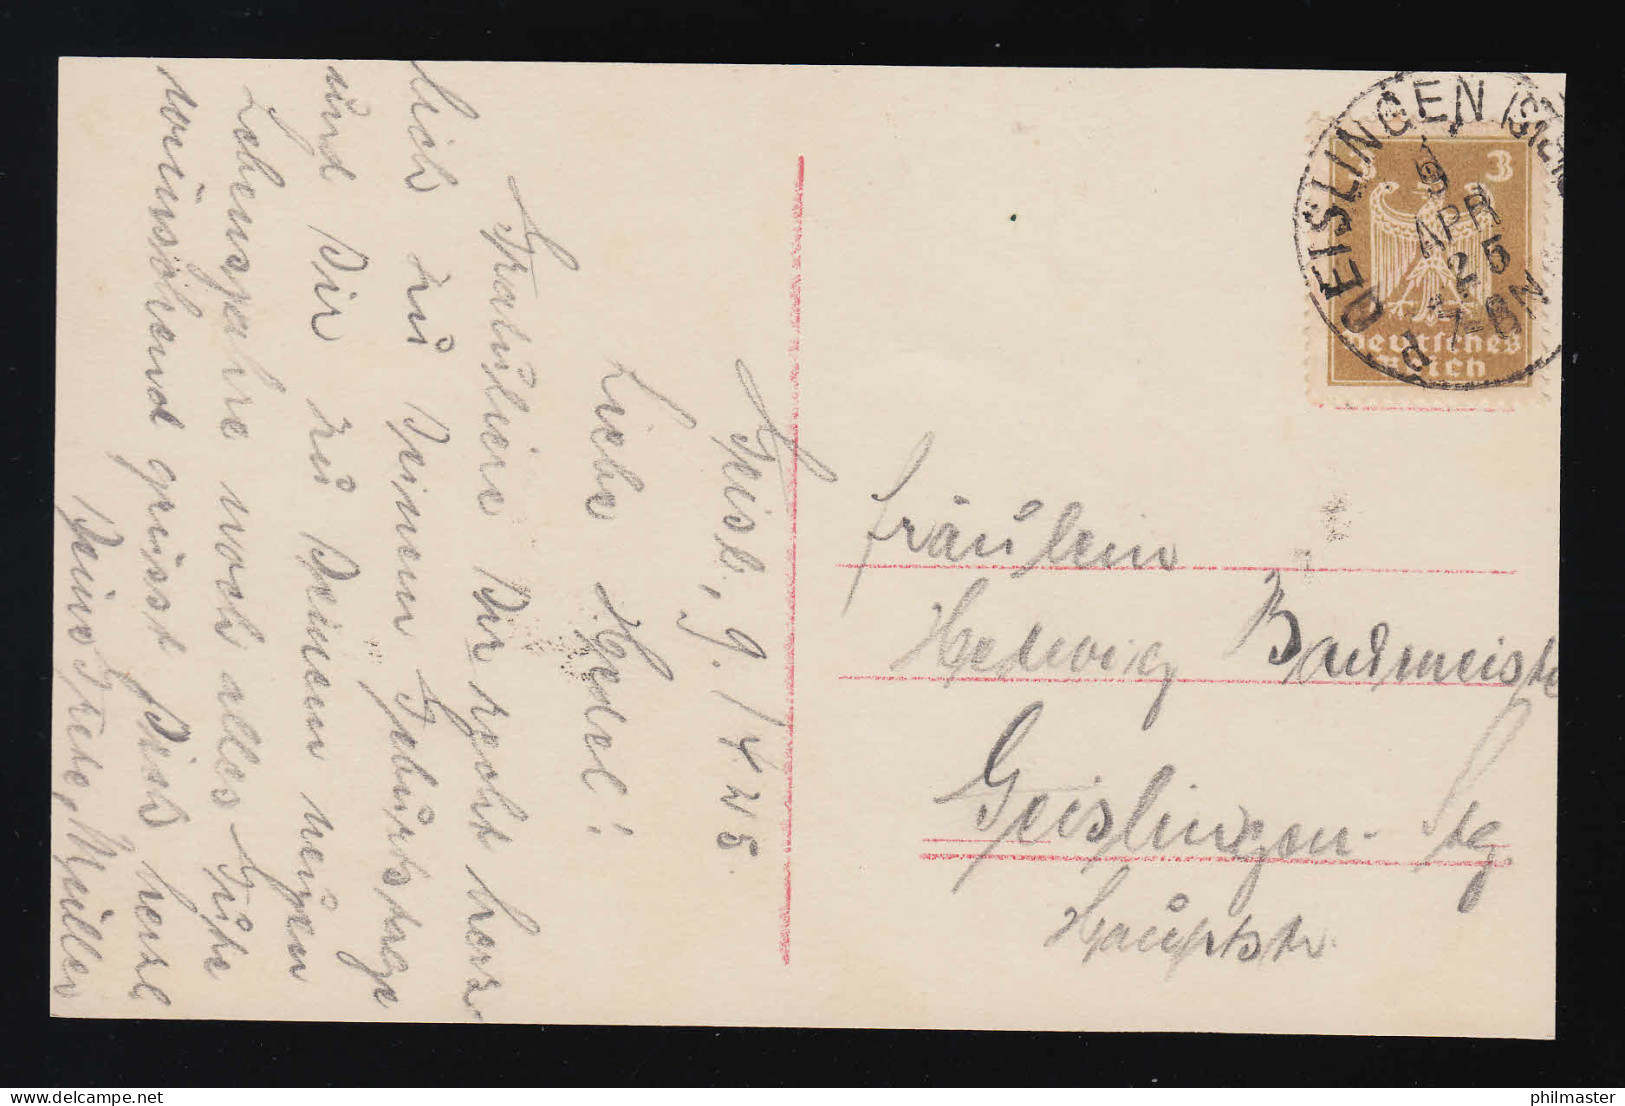 Geisl., 9./4 25.
Liebe Hedel!
Gratuliere Dir recht herz
lich zu Deinem Geburtstage
und Dir zu Deinem neuen
Lebensjahre noch alles Gute
wünschend grüsst Dich herzl
Deine Grete Müller
GEISLINGEN (STEIG
9
APR
25
7-8N
3 3
Deutsches
Reich
Fräulein
Hedwig Backmeiste
Geislingen-Stg.
Hauptstr.
philmaster